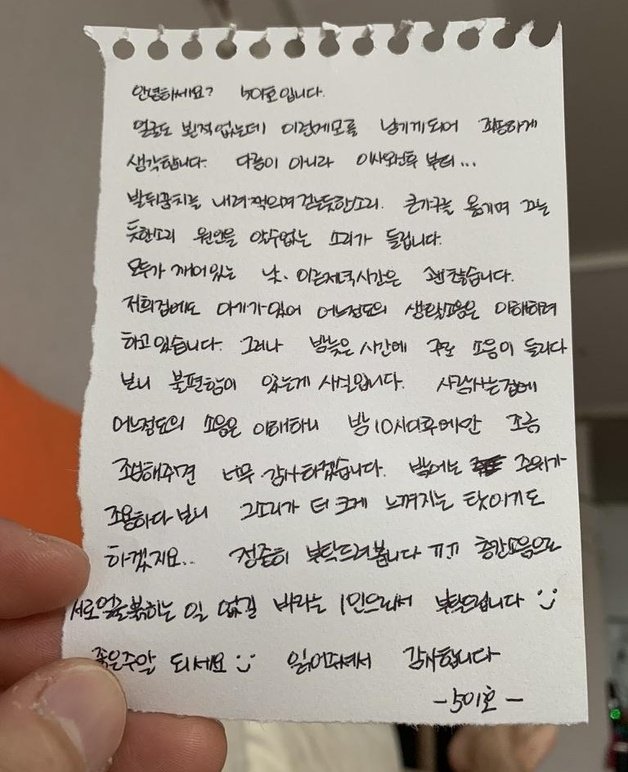 안녕하세요? 501호입니다.
얼굴도 뵌적 없는데 이런메모를 남기게되어 죄송하게
생각합니다. 다름이 아니라 이사오신후 부터...
발뒤꿈치를 내려찍으며 걷는듯한소리. 큰가구를 옮기며 끄는
듯한소리 원인을 알수없는 소리가 들립니다.
모두가 깨어있는 낮, 이른저녁시간은 괜찮습니다.
저희집에도 아기가있어 어느정도의 생활소음은 이해하려
하고있습니다. 그러나 밤늦은 시간에 주로 소음이 들리다
보니 불편함이 있는게 사실입니다. 사람사는집에
어느정도의 소음은 이해하니 밤10시이후에만 조금
조심해주면 너무 감사하겠습니다. 밤에는 주위가
조용하다 보니 그소리가 더 크게 느껴지는 탓이기도
하겠지요.. 정중히 부탁드려봅니다 ㅠㅠ 층간소음으로
서로 얼굴붉히는 일 없길 바라는 1인으로서 부탁드립니다 :)
좋은주말 되세요 :) 읽어주셔서 감사합니다
-501호-